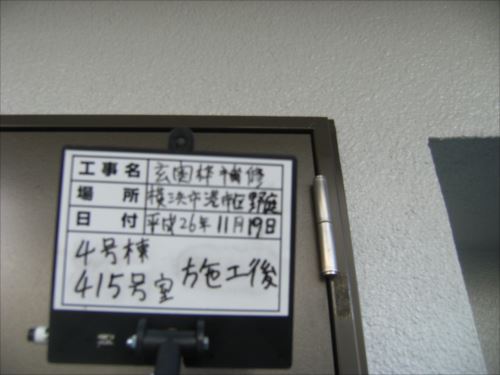 工事名 玄関枠補修
場所 横浜市港南区野庭
日付 平成26年11月19日
4号棟
415号室 施工後